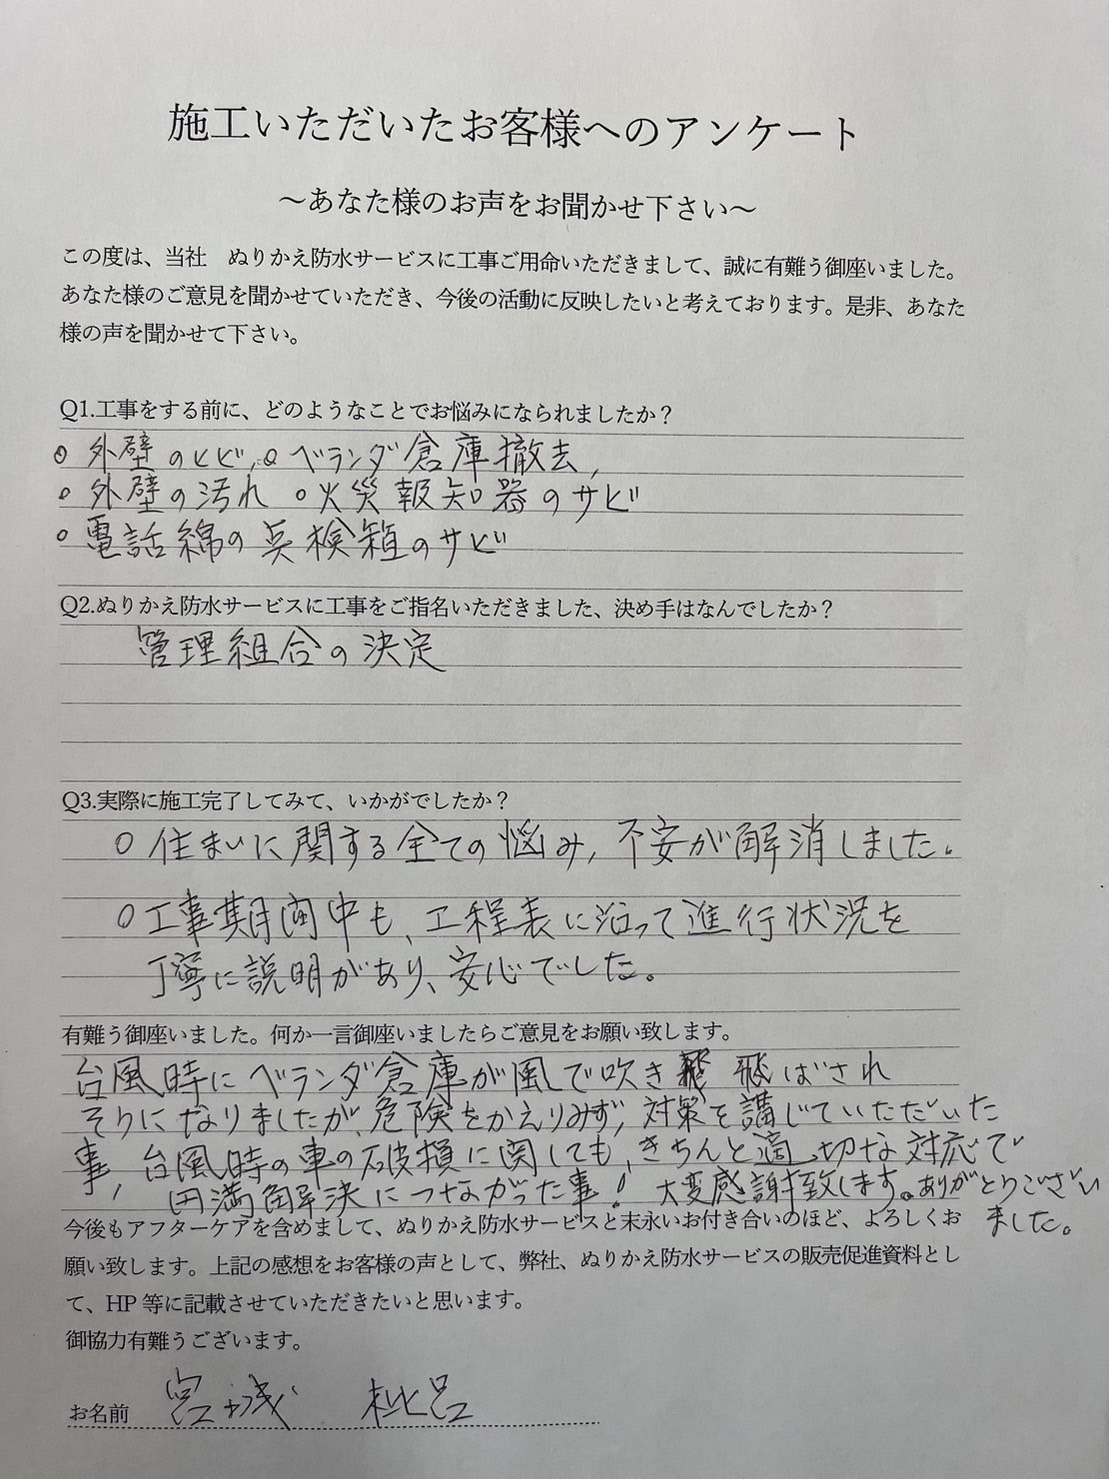 施工いただいたお客様へのアンケート
～あなた様のお声をお聞かせ下さい～
この度は、当社　ぬりかえ防水サービスに工事ご用命いただきまして、誠に有難う御座いました。
あなた様のご意見を聞かせていただき、今後の活動に反映したいと考えております。是非、あなた
様の声を聞かせて下さい。
Q1.工事をする前に、どのようなことでお悩みになられましたか？
○外壁のヒビ,○ベランダ倉庫撤去,
○外壁の汚れ ○火災報知器のサビ
○電話綿の点検箱のサビ
Q2.ぬりかえ防水サービスに工事をご指名いただきました、決め手はなんでしたか？
管理組合の決定
Q3.実際に施工完了してみて、いかがでしたか？
○住まいに関する全ての悩み,不安が解消しました。
○工事期間中も、工程表に沿って進行状況を
丁寧に説明があり、安心でした。
有難う御座いました。何か一言御座いましたらご意見をお願い致します。
台風時にベランダ倉庫が風で吹き飛ばされ
そうになりましたが、危険をかえりみず,対策を講じていただいた
事,台風時の車の破損に関しても,きちんと適切な対応で
円満解決につながった事!大変感謝致します。ありがとうござい
ました。
今後もアフターケアを含めまして、ぬりかえ防水サービスと末永いお付き合いのほど、よろしくお
願い致します。上記の感想をお客様の声として、弊社、ぬりかえ防水サービスの販売促進資料とし
て、HP 等に記載させていただきたいと思います。
御協力有難うございます。
お名前 宮城